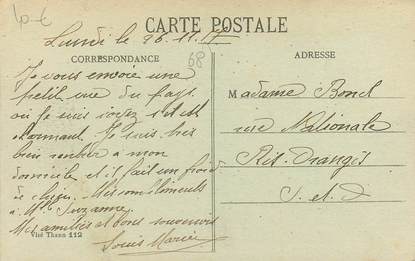 10-6
CARTE POSTALE
Lundi le 26.11.17
CORRESPONDANCE
68
ADRESSE
Je vous envoie une
petit vue du pays
ou je suis
charmant. Je suis très
bien rentrer a mon
domicile et il fait un froid
de chien. Mes compliments
à Mlle Suzanne.
Mes amitiés et bons souvenirs
Louis Marié
Vlsé Thann 112
Madame Bonel
rue Nationale
Ris-Orangis
S. et O.